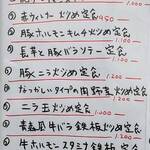 1.000
赤ウィンナー炒め定食 950
豚ホルモンキムチ炒め定食
1.100
長芋と豚バラソテー定食
1.100
豚ニラ炒め定食 1.200
なつかしいタイプの
ニラ玉炒め定食
1.000
青森風牛バラ鉄板炒め定食
1.200
牛ホルモンスタミナ鉄板定食